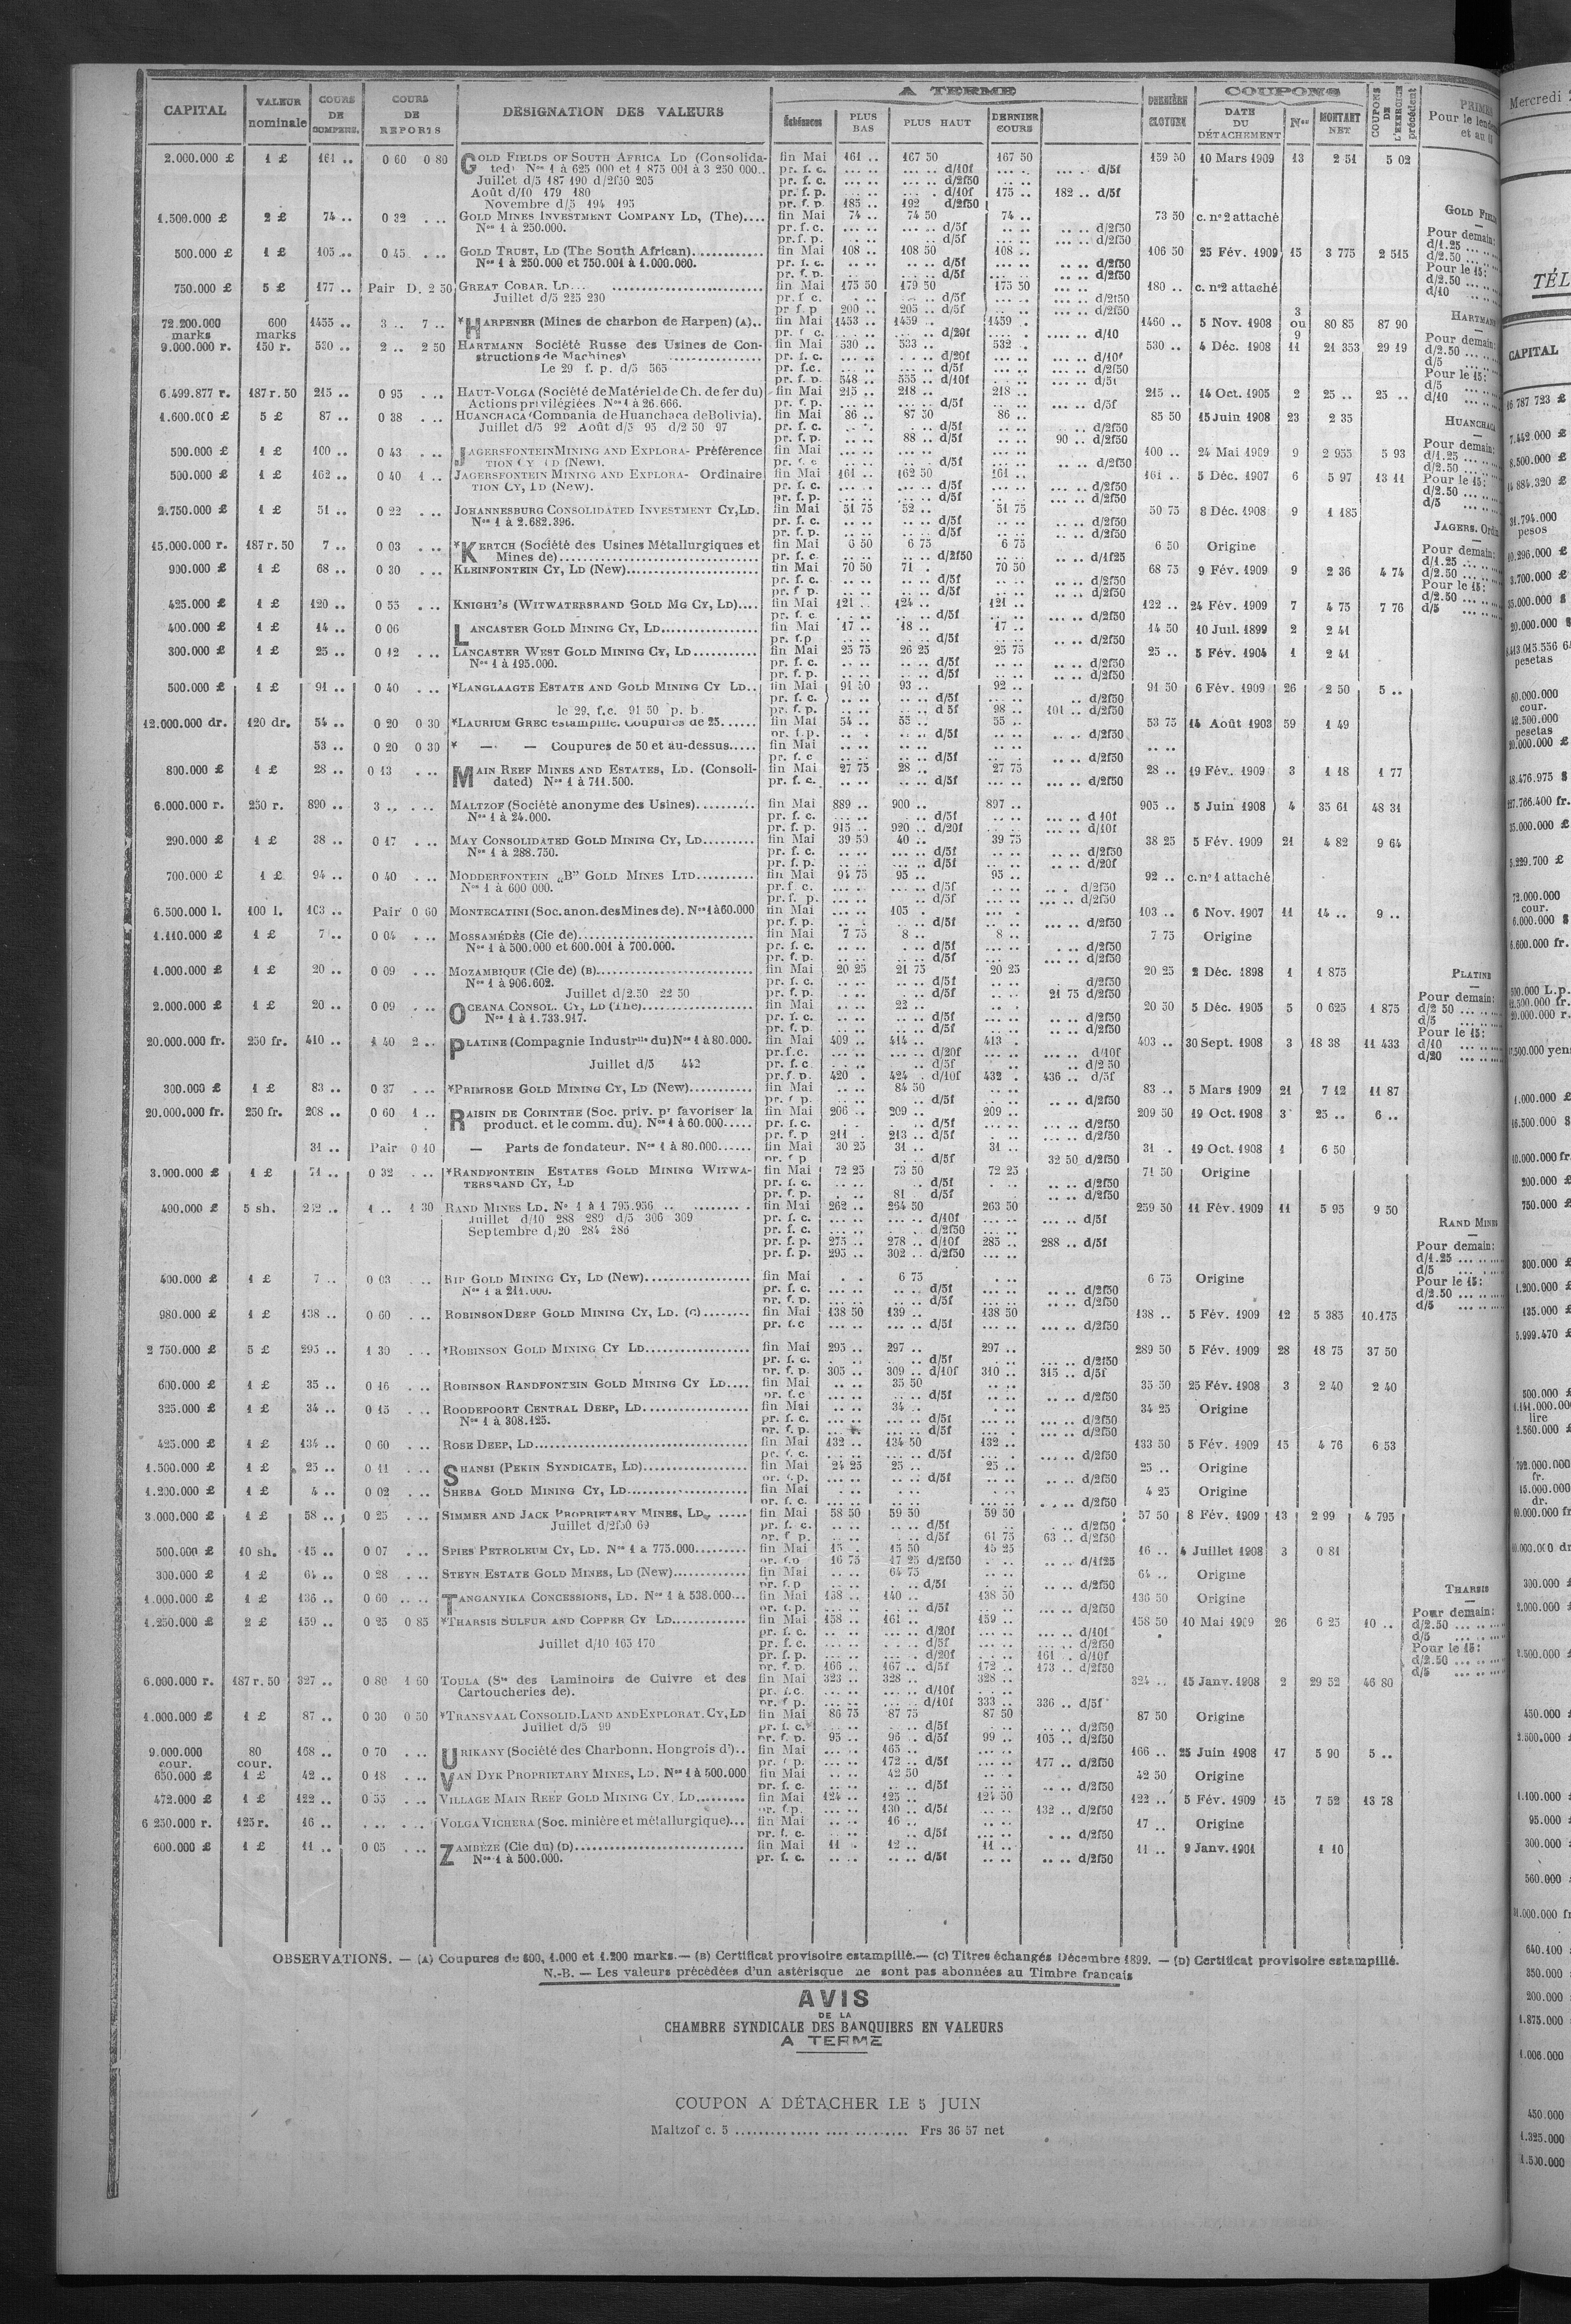 CAPITAL | VALEUR nominale | COURS DE COMPENS. | COURS DE REPORTS | DÉSIGNATION DES VALEURS | A TERME | Échéances | PLUS BAS | PLUS HAUT | DERNIER COURS | DERNIÈRE CLOTURE | COUPONS | DATE DU DÉTACHEMENT | Nos | MONTANT NET | COUPONS DE L'EXERCICE précédent
2.000.000 £ 1 £ 161 .. 0 60 0 80 GOLD FIELDS OF SOUTH AFRICA LD (Consolida- fin Mai 161 .. 167 50 167 50 159 50 10 Mars 1909 13 2 51 5 02
ted) Nos 1 à 625 000 et 1 875 001 à 3 250 000.. pr. f. c. ... .. .... .. d/10f ... .. .... .. d/5f
Juillet d/5 187 190 d/2f50 205 pr. f. c. ... .. .... .. d/2f50
Août d/10 179 180 pr. f. p. ... .. .... .. d/10f 175 .. 182 .. d/5f
Novembre d/5 194 195 pr. f. p. 185 .. 192 d/2f50
1.500.000 £ 2 £ 74 .. 0 32 . .. GOLD MINES INVESTMENT COMPANY LD, (The).... fin Mai 74 .. 74 50 74 .. 73 50 c. n° 2 attaché
Nos 1 à 250.000. pr. f. c. d/5f d/2f50
pr. f. p. d/5f d/2f50
500.000 £ 1 £ 105 .. 0 45 . .. GOLD TRUST, LD (The South African)............ fin Mai 108 .. 108 50 108 .. 106 50 25 Fév. 1909 15 3 775 2 515
Nos 1 à 250.000 et 750.001 à 1.000.000. pr. f. c. d/5f d/2f50
pr. f. p. d/5f d/2f50
750.000 £ 5 £ 177 .. Pair D. 2 50 GREAT COBAR, LD... fin Mai 175 50 179 50 175 50 180 .. c. n°2 attaché
Juillet d/5 225 230 pr. f. c. d/5f d/2f50
pr. f. p 200 .. 205 .. d/5f d/2f50
72.200.000 marks 600 marks 1455 .. 3 .. 7 .. *HARPENER (Mines de charbon de Harpen) (A).. fin Mai 1453 .. 1459 .. 1459 . 1460 .. 5 Nov. 1908 3 ou 9 80 85 87 90
pr. f. c. d/20f d/10
9.000.000 r. 150 r. 530 .. 2 .. 2 50 HARTMANN Société Russe des Usines de Con- fin Mai 530 .. 533 .. 532 . 530 .. 4 Déc. 1908 11 21 353 29 19
structions de Machines) pr. f. c. d/20f d/10f
Le 29 f. p. d/5 565 pr. f.c. d/5f d/2f50
pr. f. p. 548 .. 555 .. d/10f d/5f
6.499.877 r. 187 r. 50 215 .. 0 95 . .. HAUT-VOLGA (Société de Matériel de Ch. de fer du) fin Mai 215 .. 218 .. 218 .. 215 .. 14 Oct. 1905 2 25 .. 25 ..
Actions privilégiées Nos 1 à 26.666. pr. f. p. d/5f d/5f
1.600.000 £ 5 £ 87 .. 0 38 . .. HUANCHACA (Compania de Huanchaca de Bolivia). fin Mai 86 .. 87 50 86 .. 85 50 15 Juin 1908 23 2 35
Juillet d/5 92 Août d/5 95 d/2 50 97 pr. f. c. d/5f d/2f50
pr. f. p. 88 .. d/5f 90 .. d/2f50
500.000 £ 1 £ 100 .. 0 43 . .. JAGERSFONTEIN MINING AND EXPLORA- Préférence fin Mai 100 .. 24 Mai 1909 9 2 955 5 93
TION CY LD (New). pr. f. c d/5f d/2f50
500.000 £ 1 £ 162 .. 0 40 1 .. JAGERSFONTEIN MINING AND EXPLORA- Ordinaire fin Mai 161 .. 162 50 161 .. 161 .. 5 Déc. 1907 6 5 97 13 11
TION CY, LD (New). pr. f. c. d/5f d/2f50
pr. f. p. d/5f d/2f50
2.750.000 £ 1 £ 51 .. 0 22 . .. JOHANNESBURG CONSOLIDATED INVESTMENT CY, LD. fin Mai 51 75 52 .. 51 75 50 75 8 Déc. 1908 9 1 185
Nos 1 à 2.682.396. pr. f. c. d/5f d/2f50
pr. f. p. d/5f d/2f50
15.000.000 r. 187 r. 50 7 .. 0 03 . .. *KERTCH (Société des Usines Métallurgiques et fin Mai 6 50 6 75 6 75 6 50 Origine
Mines de) pr. f. c d/2f50 d/1f25
900.000 £ 1 £ 68 .. 0 30 . .. KLEINFONTEIN CY, LD (New)........ fin Mai 70 50 71 . 70 50 68 75 9 Fév. 1909 9 2 36 4 74
pr. f. c. d/5f d/2f50
pr. f. p. d/5f d/2f50
425.000 £ 1 £ 120 .. 0 55 . .. KNIGHT'S (WITWATERSRAND GOLD MG CY, LD).... fin Mai 121 .. 124 .. 121 .. 122 .. 24 Fév. 1909 7 4 75 7 76
pr. f. c. d/5f d/2f50
400.000 £ 1 £ 14 .. 0 06 LANCASTER GOLD MINING CY, LD........ fin Mai 17 .. 18 .. 17 .. 14 50 10 Juil. 1899 2 2 41
pr. f.p d/5f d/2f50
300.000 £ 1 £ 25 .. 0 12 . .. LANCASTER WEST GOLD MINING CY, LD ........ fin Mai 25 75 26 25 25 75 25 .. 5 Fév. 1904 1 2 41
Nos 1 à 195.000. pr. f. c. d/5f d/2f50
pr. f. p. d/5f d/2f50
500.000 £ 1 £ 91 .. 0 40 . .. *LANGLAAGTE ESTATE AND GOLD MINING CY LD.. fin Mai 91 50 93 .. 92 .. 91 50 6 Fév. 1909 26 2 50 5 ..
pr. f. c. d/5f d/2f50
le 29, f.c. 91 50 p. b. pr. f. p. d 5f 98 .. 101 .. d/2f50
12.000.000 dr. 120 dr. 54 .. 0 20 0 30 *LAURIUM GREC estampillé. Coupures de 25...... fin Mai 54 .. 55 .. 55 .. 53 75 14 Août 1903 59 1 49
pr. f.p. d/5f d/2f50
53 .. 0 20 0 30 * — — Coupures de 50 et au-dessus..... fin Mai
pr. f. c d/5f d/2f50
800.000 £ 1 £ 28 .. 0 13 . .. MAIN REEF MINES AND ESTATES, LD. (Consoli- fin Mai 27 75 28 .. 27 75 28 .. 19 Fév. 1909 3 1 18 1 77
dated) Nos 1 à 711.500. pr. f. c. d/5f d/2f50
6.000.000 r. 250 r. 890 .. 3 .. . .. MALTZOF (Société anonyme des Usines)........ fin Mai 889 .. 900 .. 897 .. 905 .. 5 Juin 1908 4 35 61 48 31
Nos 1 à 24.000. pr. f. c. d/5f d 10f
pr. f. p. 915 .. 920 .. d/20f d/10f
290.000 £ 1 £ 38 .. 0 17 . .. MAY CONSOLIDATED GOLD MINING CY, LD........ fin Mai 39 50 40 .. 39 75 38 25 5 Fév. 1909 21 4 82 9 64
Nos 1 à 288.750. pr. f. c. d/5f d/2f50
pr. f. p. d/5f d/20f
700.000 £ 1 £ 94 .. 0 40 . .. MODDERFONTEIN „B” GOLD MINES LTD........ fin Mai 94 75 95 .. 95 .. 92 .. c. n° 1 attaché
Nos 1 à 600 000. pr. f. c. d/5f d/2f50
pr. f. p. d/5f d/2f50
6.500.000 l. 100 l. 103 .. Pair 0 60 MONTECATINI (Soc. anon. des Mines de). Nos 1 à 60.000 fin Mai 105 . 103 .. 6 Nov. 1907 11 14 .. 9 ..
pr. f. p. d/5f d/2f50
1.110.000 £ 1 £ 7 .. 0 04 . .. MOSSAMÉDÈS (Cie de)........ fin Mai 7 75 8 .. 8 .. 7 75 Origine
Nos 1 à 500.000 et 600.001 à 700.000. pr. f. c. d/5f d/2f50
pr. f. p. d/5f d/2f50
1.000.000 £ 1 £ 20 .. 0 09 . .. MOZAMBIQUE (Cie de) (B)........ fin Mai 20 25 21 75 20 25 20 25 2 Déc. 1898 1 1 875
Nos 1 à 906.602. pr. f. c. d/5f d/2f50
Juillet d/2.50 22 50 pr. f. p. d/5f 21 75 d/2f50
2.000.000 £ 1 £ 20 .. 0 09 . .. OCEANA CONSOL. CY, LD (The)........ fin Mai 22 .. 20 50 5 Déc. 1905 5 0 625 1 875
Nos 1 à 1.733.917. pr. f. c. d/5f d/2f50
pr. f. p. d/5f d/2f50
20.000.000 fr. 250 fr. 410 .. 1 40 2 .. PLATINE (Compagnie Industrlle du) Nos 1 à 80.000. fin Mai 409 .. 414 .. 413 . 403 .. 30 Sept. 1908 3 18 38 11 433
pr. f.c. d/20f d/10f
Juillet d/5 442 pr. f. c d/5f d/2 50
pr. f. p. 420 . 424 . d/10f 432 . 436 .. d/5f
300.000 £ 1 £ 83 .. 0 37 . .. *PRIMROSE GOLD MINING CY, LD (New)........ fin Mai 84 50 83 .. 5 Mars 1909 21 7 12 11 87
pr. f. p. d/5f d/2f50
20.000.000 fr. 250 fr. 208 .. 0 60 1 .. RAISIN DE CORINTHE (Soc. priv. pr favoriser la fin Mai 206 .. 209 .. 209 .. 209 50 19 Oct. 1908 3 25 .. 6 ..
product. et le comm. du). Nos 1 à 60.000..... pr. f. c. d/5f d/2f50
pr. f. p 211 . 213 .. d/5f d/2f50
31 .. Pair 0 10 — Parts de fondateur. Nos 1 à 80.000...... fin Mai 30 25 31 .. 31 .. 31 . 19 Oct. 1908 1 6 50
pr. f p d/5f 32 50 d/2f50
3.000.000 £ 1 £ 71 .. 0 32 . .. *RANDFONTEIN ESTATES GOLD MINING WITWA- fin Mai 72 25 73 50 72 25 71 50 Origine
TERSRAND CY, LD pr. f. c. d/5f d/2f50
pr. f. p. 81 . d/5f d/2f50
490.000 £ 5 sh. 262 .. 1 .. 1 30 RAND MINES LD. No 1 à 1 795.956 fin Mai 262 .. 264 50 263 50 259 50 11 Fév. 1909 11 5 95 9 50
Juillet d/10 288 289 d/5 306 309 pr. f. c. d/10f d/5f
Septembre d/20 284 286 pr. f. c. d/2f50
pr. f. p. 275 .. 278 .. d/10f 285 .. 288 .. d/5f
pr. f. p. 295 .. 302 .. d/2f50
400.000 £ 1 £ 7 .. 0 03 . .. RIP GOLD MINING CY, LD (New)........ fin Mai 6 75 6 75 Origine
Nos 1 à 211.000. pr. f. c. d/5f d/2f50
pr. f. p. d/5f d/2f50
980.000 £ 1 £ 138 .. 0 60 . .. ROBINSON DEEP GOLD MINING CY, LD. (C)........ fin Mai 138 50 139 .. 138 50 138 .. 5 Fév. 1909 12 5 385 10.175
pr. f.c d/5f d/2f50
2 750.000 £ 5 £ 295 .. 1 30 . .. *ROBINSON GOLD MINING CY LD........ fin Mai 295 .. 297 .. 297 .. 289 50 5 Fév. 1909 28 18 75 37 50
pr. f. c. d/5f d/2f50
pr. f. p. 305 .. 309 .. d/10f 310 .. 315 .. d/5f
600.000 £ 1 £ 35 .. 0 16 . .. ROBINSON RANDFONTEIN GOLD MINING CY LD.... fin Mai 35 50 35 50 25 Fév. 1908 3 2 40 2 40
pr. f. c d/5f d/2f50
325.000 £ 1 £ 34 .. 0 15 . .. ROODEPOORT CENTRAL DEEP, LD........ fin Mai 34 .. 34 25 Origine
Nos 1 à 308.125. pr. f. c. d/5f d/2f50
pr. f. p. d/5f d/2f50
425.000 £ 1 £ 134 .. 0 60 . .. ROSE DEEP, LD........ fin Mai 132 .. 134 50 132 .. 133 50 5 Fév. 1909 15 4 76 6 53
pr. f. c. d/5f d/2f50
1.500.000 £ 1 £ 25 .. 0 11 . .. SHANSI (PEKIN SYNDICATE, LD)........ fin Mai 24 25 25 .. 25 .. 25 .. Origine
pr. f.p. d/5f d/2f50
1.200.000 £ 1 £ 4 .. 0 02 . .. SHEBA GOLD MINING CY, LD........ fin Mai 4 25 Origine
pr. f. c. d/2f50
3.000.000 £ 1 £ 58 .. 0 25 . .. SIMMER AND JACK PROPRIETARY MINES, LD. ..... fin Mai 58 50 59 50 59 50 57 50 8 Fév. 1909 13 2 99 4 795
Juillet d/2f50 69 pr. f. c. d/5f d/2f50
pr. f. p. d/5f 61 75 63 .. d/2f50
500.000 £ 10 sh. 15 .. 0 07 . .. SPIES PETROLEUM CY, LD. Nos 1 à 775.000........ fin Mai 15 . 15 50 15 25 16 .. 4 Juillet 1908 3 0 81
pr. f.p 16 75 17 25 d/2f50 d/1f25
300.000 £ 1 £ 64 .. 0 28 . .. STEYN ESTATE GOLD MINES, LD (New)........ fin Mai 64 75 64 .. Origine
pr. f.p d/5f d/2f50
1.000.000 £ 1 £ 136 .. 0 60 .. .. TANGANYIKA CONCESSIONS, LD. Nos 1 à 538.000... fin Mai 138 .. 140 .. 138 50 136 50 Origine
pr. f.p. d/5f d/2f50
1.250.000 £ 2 £ 159 .. 0 25 0 85 *THARSIS SULFUR AND COPPER CY LD........ fin Mai 158 .. 161 .. 159 .. 158 50 10 Mai 1909 26 6 25 10 ..
pr. f. c. d/20f d/10f
Juillet d/10 165 170 pr. f. c. d/5f d/2f50
pr. f. p. d/20f 161 . d/10f
pr. f. p. 166 .. 167 .. d/5f 172 .. 173 .. d/2f50
6.000.000 r. 187 r. 50 327 .. 0 80 1 60 TOULA (Sté des Laminoirs de Cuivre et des fin Mai 323 .. 328 .. 328 .. 324 .. 15 Janv. 1908 2 29 52 46 80
Cartoucheries de). pr. f.c. d/10f
pr. f p. d/10f 333 .. 336 .. d/5f
1.000.000 £ 1 £ 87 .. 0 30 0 50 *TRANSVAAL CONSOLID. LAND AND EXPLORAT. CY, LD fin Mai 86 75 87 75 87 50 87 50 Origine
Juillet d/5 99 pr. f. c. d/5f d/2f50
pr. f. p. 95 .. 96 .. d/5f 99 .. 105 .. d/2f50
9.000.000 cour. 80 cour. 168 .. 0 70 . .. URIKANY (Société des Charbonn. Hongrois d').. fin Mai 165 .. 166 .. 25 Juin 1908 17 5 90 5 ..
pr. f p. 172 .. d/5f 177 .. d/2f50
650.000 £ 1 £ 42 .. 0 18 . .. VAN DYK PROPRIETARY MINES, LD. Nos 1 à 500.000 fin Mai 42 50 42 50 Origine
pr. f. c. d/5f d/2f50
472.000 £ 1 £ 122 .. 0 55 . .. VILLAGE MAIN REEF GOLD MINING CY. LD........ fin Mai 124 .. 125 .. 124 50 122 .. 5 Fév. 1909 15 7 52 13 78
pr. f.p. 130 .. d/5f 132 .. d/2f50
6 250.000 r. 125 r. 16 .. VOLGA VICHERA (Soc. minière et métallurgique)... fin Mai 16 .. 17 .. Origine
pr. f. c. d/5f d/2f50
600.000 £ 1 £ 11 .. 0 05 . .. ZAMBÈZE (Cie du) (D)........ fin Mai 11 . 12 .. 11 .. 11 .. 9 Janv. 1901 1 10
Nos 1 à 500.000. pr. f. c. d/5f d/2f50
OBSERVATIONS. — (A) Coupures de 600, 1.000 et 1.200 marks. — (B) Certificat provisoire estampillé. — (C) Titres échangés Décembre 1899. — (D) Certificat provisoire estampillé.
N.-B. — Les valeurs précédées d'un astérisque ne sont pas abonnées au Timbre français
AVIS
DE LA
CHAMBRE SYNDICALE DES BANQUIERS EN VALEURS
A TERME
COUPON A DÉTACHER LE 5 JUIN
Maltzof c. 5 ........ Frs 36 57 net
PRIMES
Pour le
et au
GOLD
Pour demain:
d/1.25
d/2.50
Pour le 15:
d/2.50
d/10
HARTMANN
Pour demain:
d/2.50
d/5
Pour le 15:
d/5
d/10
HUANCHACA
Pour demain:
d/1.25
d/2.50
Pour le 15:
d/2.50
d/5
JAGERS.
Pour demain:
d/1.25
d/2.50
Pour le 15:
d/2.50
d/5
PLATINE
Pour demain:
d/2 50
d/5
Pour le 15:
d/10
d/20
RAND MINES
Pour demain:
d/1.25
d/5
Pour le 15:
d/2.50
d/5
THARSIS
Pour demain:
d/2.50
d/5
Pour le 15:
d/2.50
d/5
Mercredi
TÉL
CAPITAL